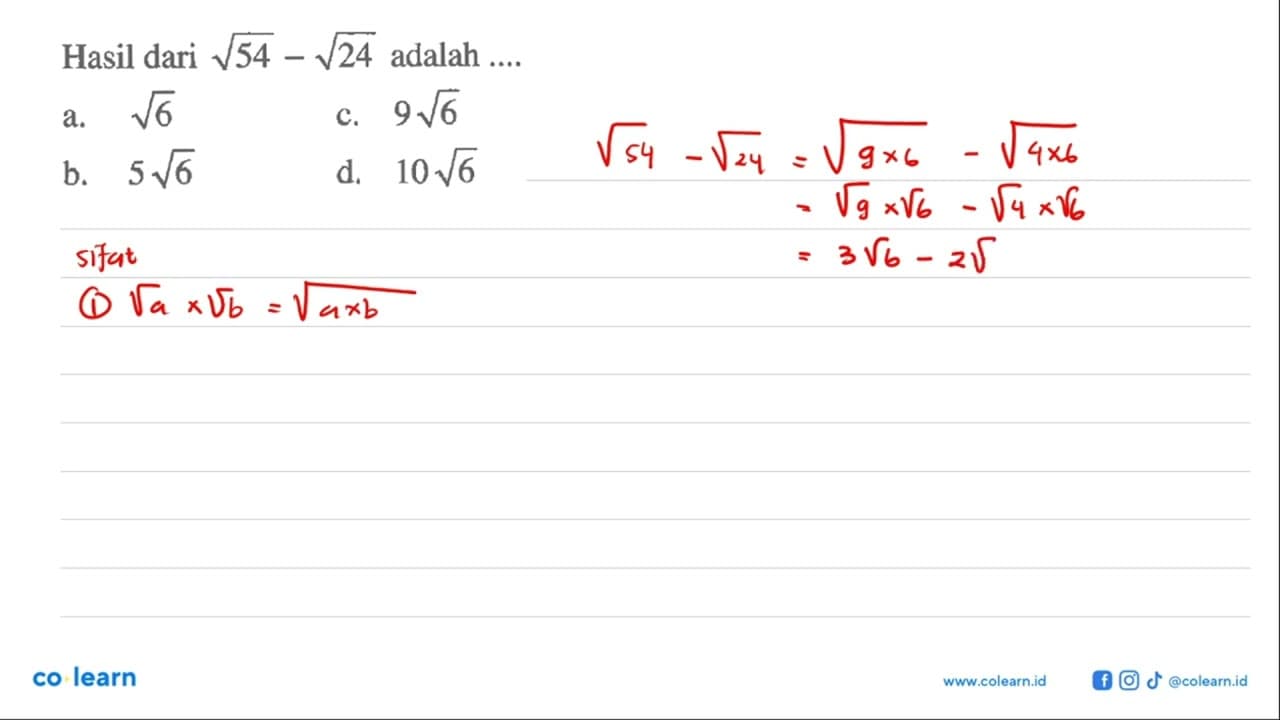 Hasil dari √54 − √24 adalah ....
a. √6 c. 9√6
b. 5√6 d. 10√6
√54 − √24 = √9×6 − √4×6
= √9 ×√6 − √4 ×√6
= 3√6 − 2√
sifat
① √a ×√b = √a×b
co learn
www.colearn.id @colearn.id